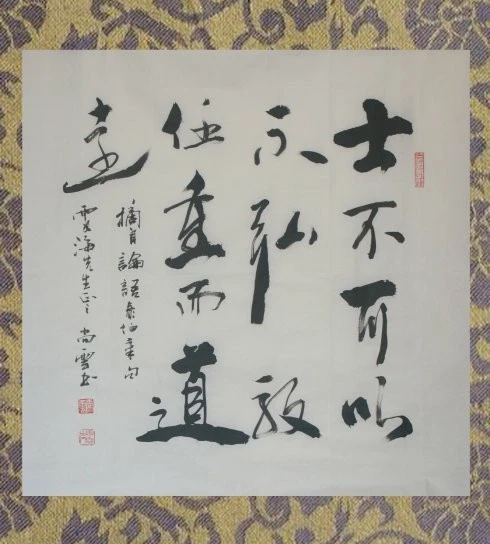 士不可以
不弘毅
任重而道
遠
摘自論語泰伯章句
海先生正之 尚